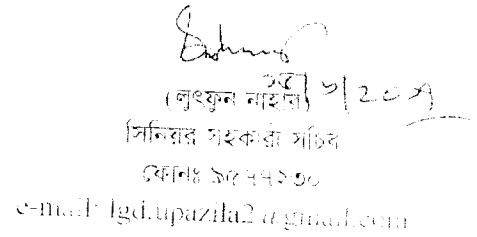 (লুৎফুন নাহার)
সিনিয়র সহকারী সচিব
ফোনঃ ৯৫৭৭২৩০
e-mail: lgd.upazila2@gmail.com